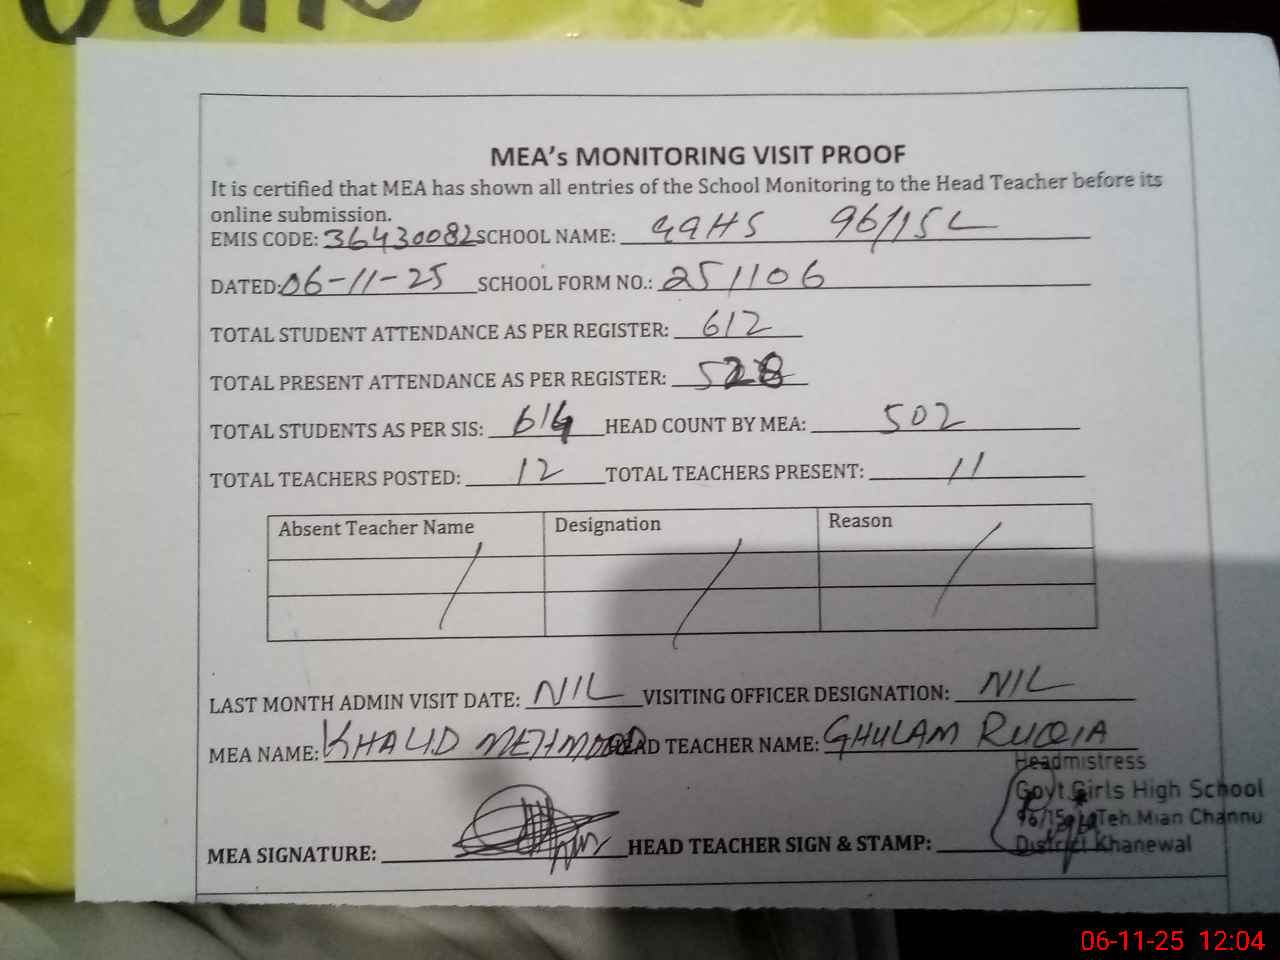 MEA's MONITORING VISIT PROOF
It is certified that MEA has shown all entries of the School Monitoring to the Head Teacher before its
online submission.
EMIS CODE: 36430082 SCHOOL NAME: GGHS 96/15L
DATED: 06-11-25 SCHOOL FORM NO.: 251106
TOTAL STUDENT ATTENDANCE AS PER REGISTER: 612
TOTAL PRESENT ATTENDANCE AS PER REGISTER: 528
TOTAL STUDENTS AS PER SIS: 614 HEAD COUNT BY MEA: 502
TOTAL TEACHERS POSTED: 12 TOTAL TEACHERS PRESENT: 11
Absent Teacher Name Designation Reason
LAST MONTH ADMIN VISIT DATE: NIL VISITING OFFICER DESIGNATION: NIL
MEA NAME: KHALID MEHMOOD HEAD TEACHER NAME: GHULAM RUQIA
Headmistress
Govt.Girls High School
96/15 Teh.Mian Channu
District Khanewal
MEA SIGNATURE: HEAD TEACHER SIGN & STAMP:
06-11-25 12:04